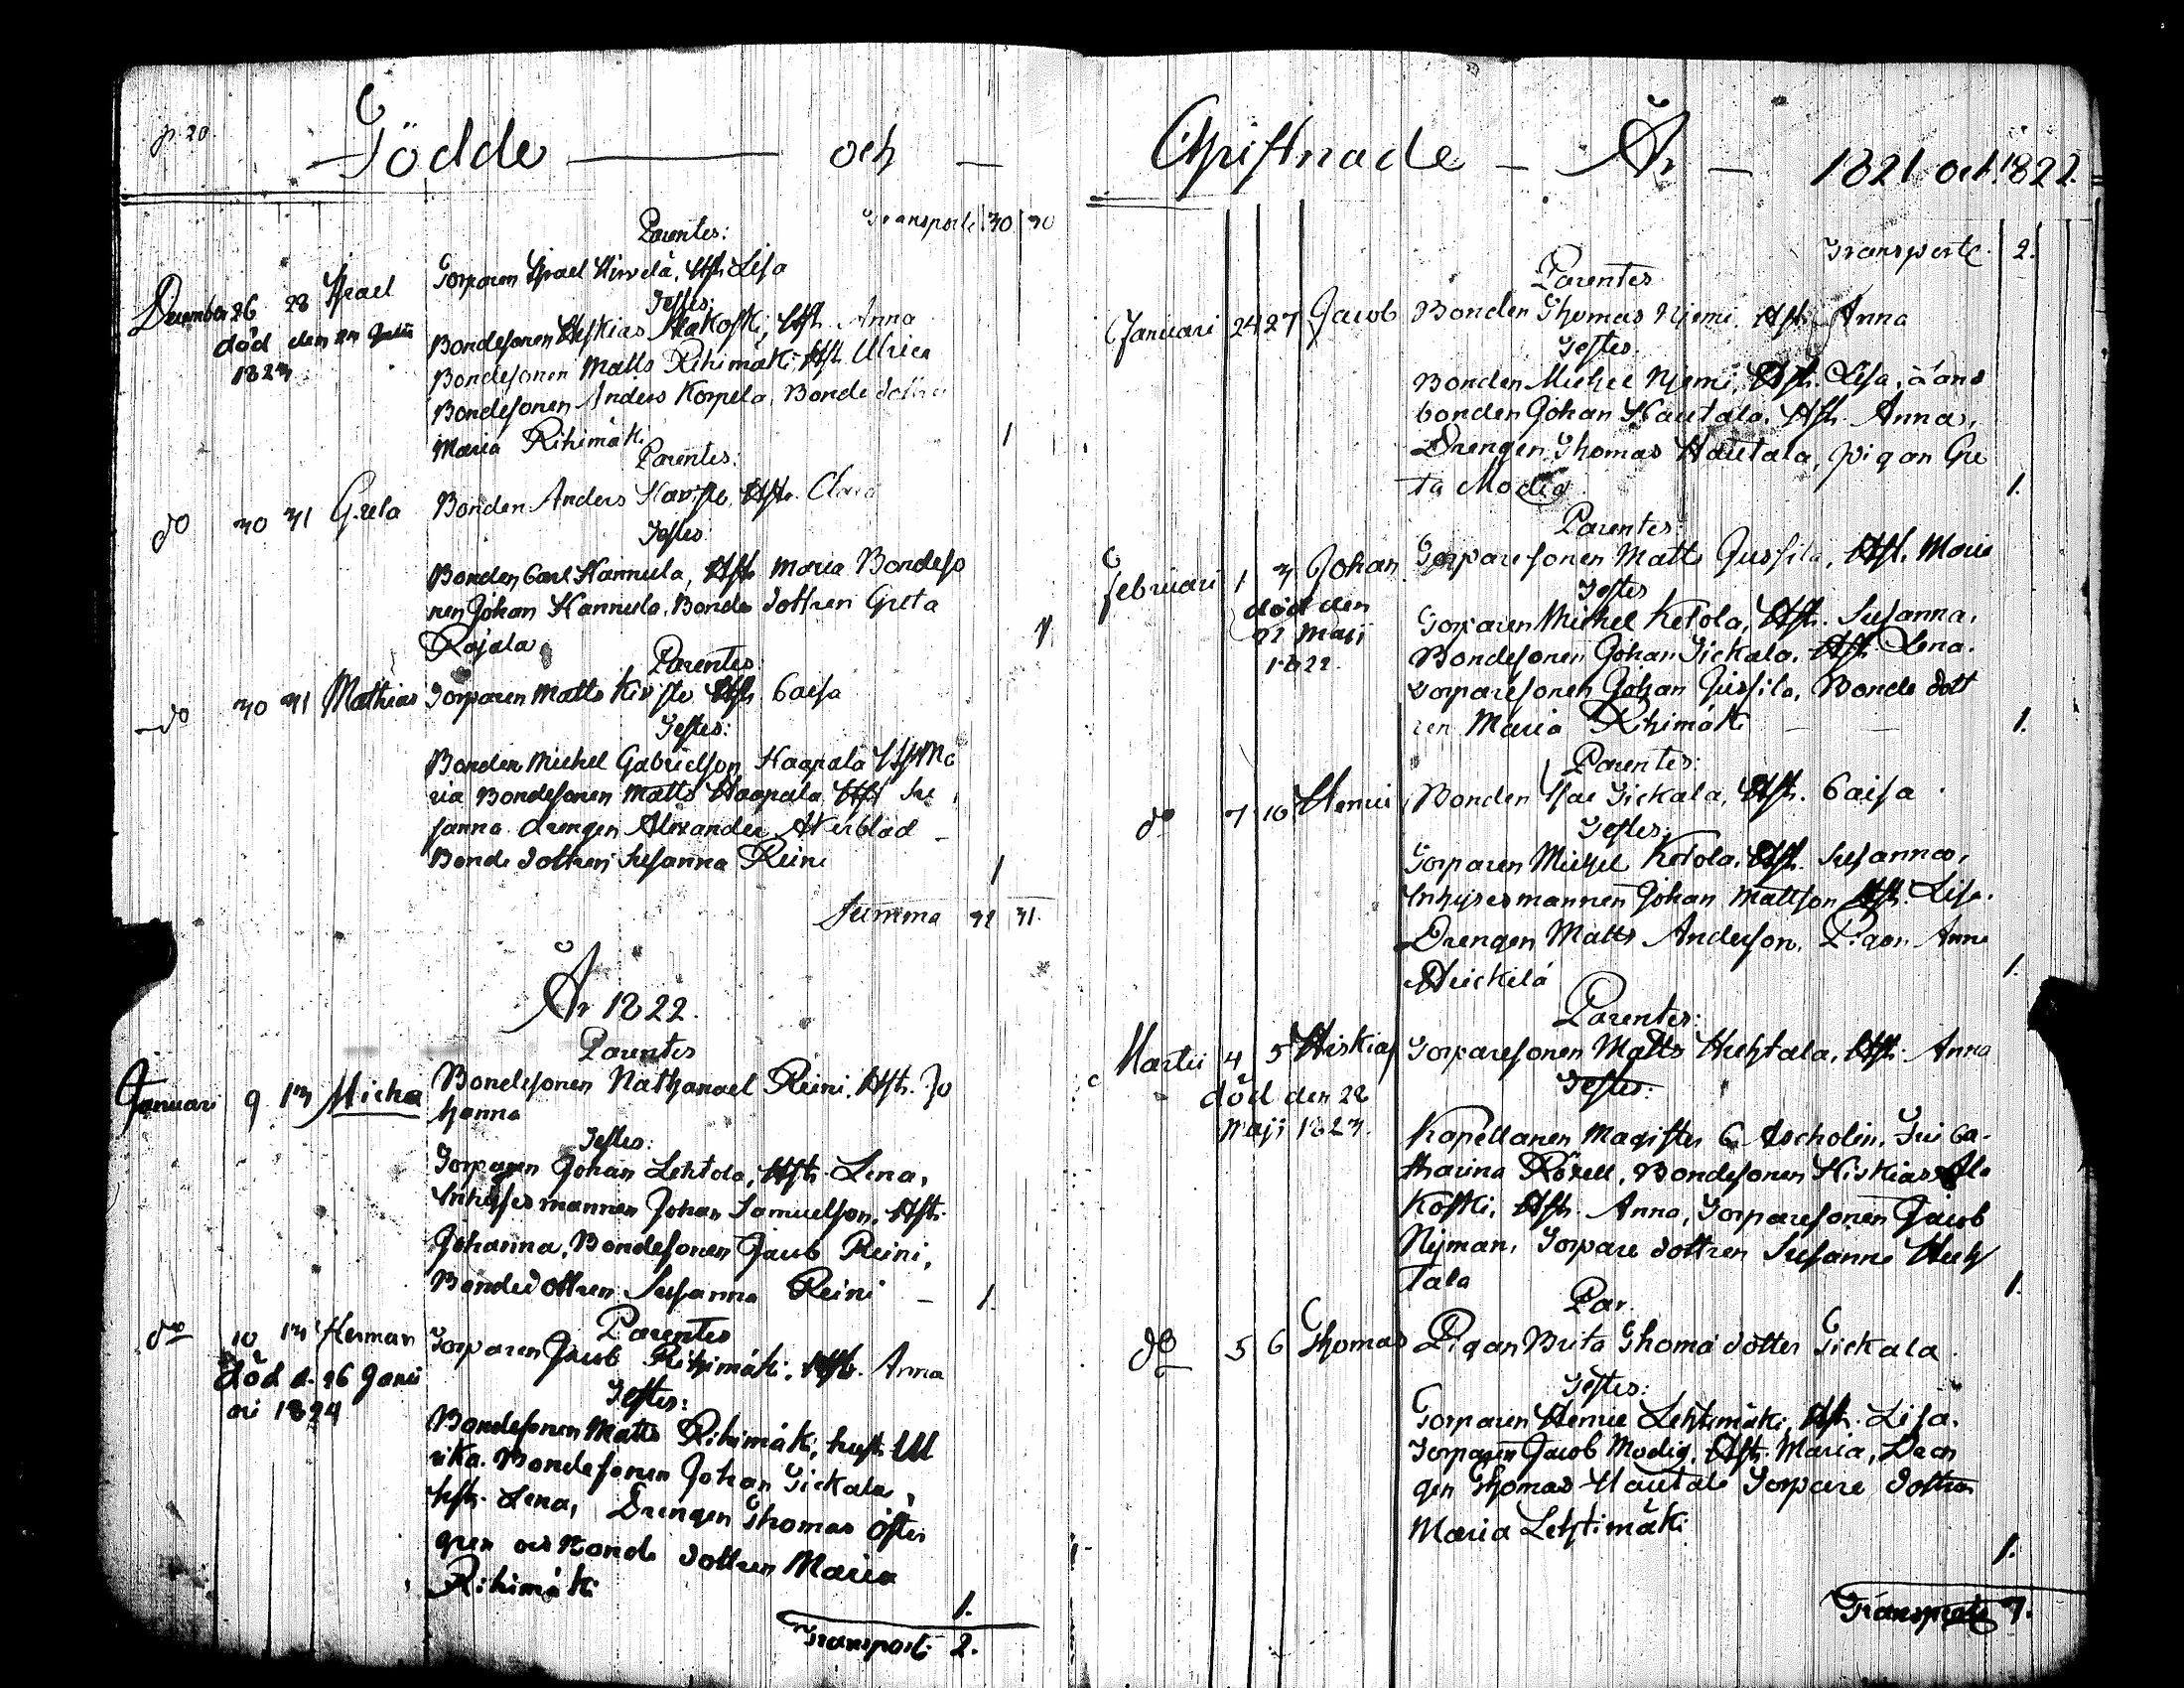 p. 20.
Födde och
Transport 30 30
Parentes:
December 26 28 Israel Torparen Israel Hirvelä, Hst. Lisa
Testes:
död den
1823
Bondesonen Hiskias Alakoski, Hst. Anna
Bondesonen Matts Rihimäki, Hst. Ulrica
Bondesonen Anders Korpela, Bonde dottren
Maria Rihimäki 1
Parentes:
do 30 31 Greta Bonden Anders Hst. Clara
Testes:
Bonden Carl Hannula, Hst. Maria Bondeso
nen Johan Hannula, Bonde dottren Greta
Rajala 1.
Parentes:
do 30 31 Mathias Torparen Matts Hst. Caisa
Testes:
Bonden Michel Gabrielson Haapala Hst Ma
ria Bondesonen Matts Haapala Hst Su
sanna drengen Alexander Akerblad
Bonde dottren Susanna Reini 1
Summa 32 31.
År 1822.
Parentes
Januari 9 13 Micha Bondesonen Nathanael Reini, Hst. Jo
hanna
Testes:
Torparen Johan Lehtola, Hst. Lena,
Inhysesmannen Johan Samuelson, Hst.
Johanna, Bondesonen Jacob Reini,
Bondedottren Susanna Reini 1.
Parentes
do 10 13 Herman Torparen Jacob Rihimäki, Hst. Anna
död d. 26 Janu
ari 1824
Testes:
Bondesonen Matts Rihimäki, hust. Ul
rika. Bondesonen Johan Tickala,
hst. Lena, Drengen Thomas Öster
gren och Bonde dottren Maria
Rihimäki
1.
Transport 2.
Christnade År 1821 och 1822.
Transporte. 2.
Parentes
Januari 24 27 Jacob Bonden Thomas Njemi, Hst. Anna
Testes.
Bonden Michel Njemi, Hst. Lisa,
bonden Johan Hautala, Hst. Anna,
Drengen Thomas Hautala, pigan Gre
ta Modig 1.
Parentes:
Februari 1 3 Johan Torparesonen Matts Jussila, Hst. Maria
död den
22 Maji
1822.
Testes
Torparen Michel Ketola, Hst. Susanna,
Bondesonen Johan Tickala, Hst. Lena.
Torparesonen Johan Jussila, Bonde dott
ren Maria Rihimäki 1.
Parentes:
do 7 10 Henric Bonden Isac Tickala, Hst. Caisa
Testes:
Torparen Michel Ketola, Hst. Susanna,
Inhysesmannen Johan Mattson Hst. Lisa.
Drengen Matts Anderson, Pigan Anna
Heickilä 1.
Parentes:
Martii 4 5 Hiskias Torparesonen Matts Huhtala, Hst. Anna
död den 28
Maji 1823.
Testes:
Kapellanen Magister C. Ascholin, Fru Ca-
tharina Rosell, Bondesonen Hiskias Ala
koski, Hst. Anna, Torparesonen Jacob
Nyman, Torpare dottren Susanna Huh
tala 1.
Par.
do 5 6 Thomas Pigan Brita Thoma dotter Tickala
Testes:
Torparen Henric Lehtimäki, Hst. Lisa.
Torparen Jacob Modig, Hst. Maria, Dren
gen Thomas Hautala Torpare dottren
Maria Lehtimäki
1.
Transporte 7.